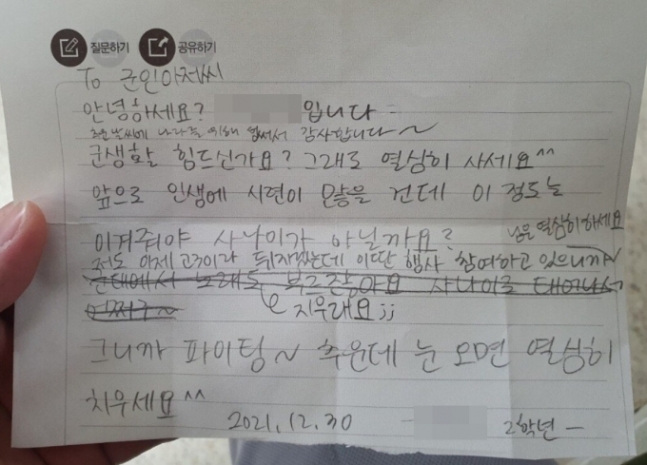 질문하기 공유하기
To 군인아저씨
안녕하세요? 입니다
추운날씨에 나라를 위해 힘써서 감사합니다~
군생활 힘드신가요? 그래도 열심히 사세요^^
앞으로 인생에 시련이 많을 건데 이 정도는
이겨줘야 사나이가 아닐까요?
님은 열심히하세요
저도 이제 고3이라 뒤지겠는데 이딴 행사 참여하고 있으니까~
군대에서 노래도 부르잖아요 사나이로 태어나서
어쩌구~
지우래요;;
그니까 파이팅~ 추운데 눈 오면 열심히
치우세요^^
2021.12.30 2학년 -